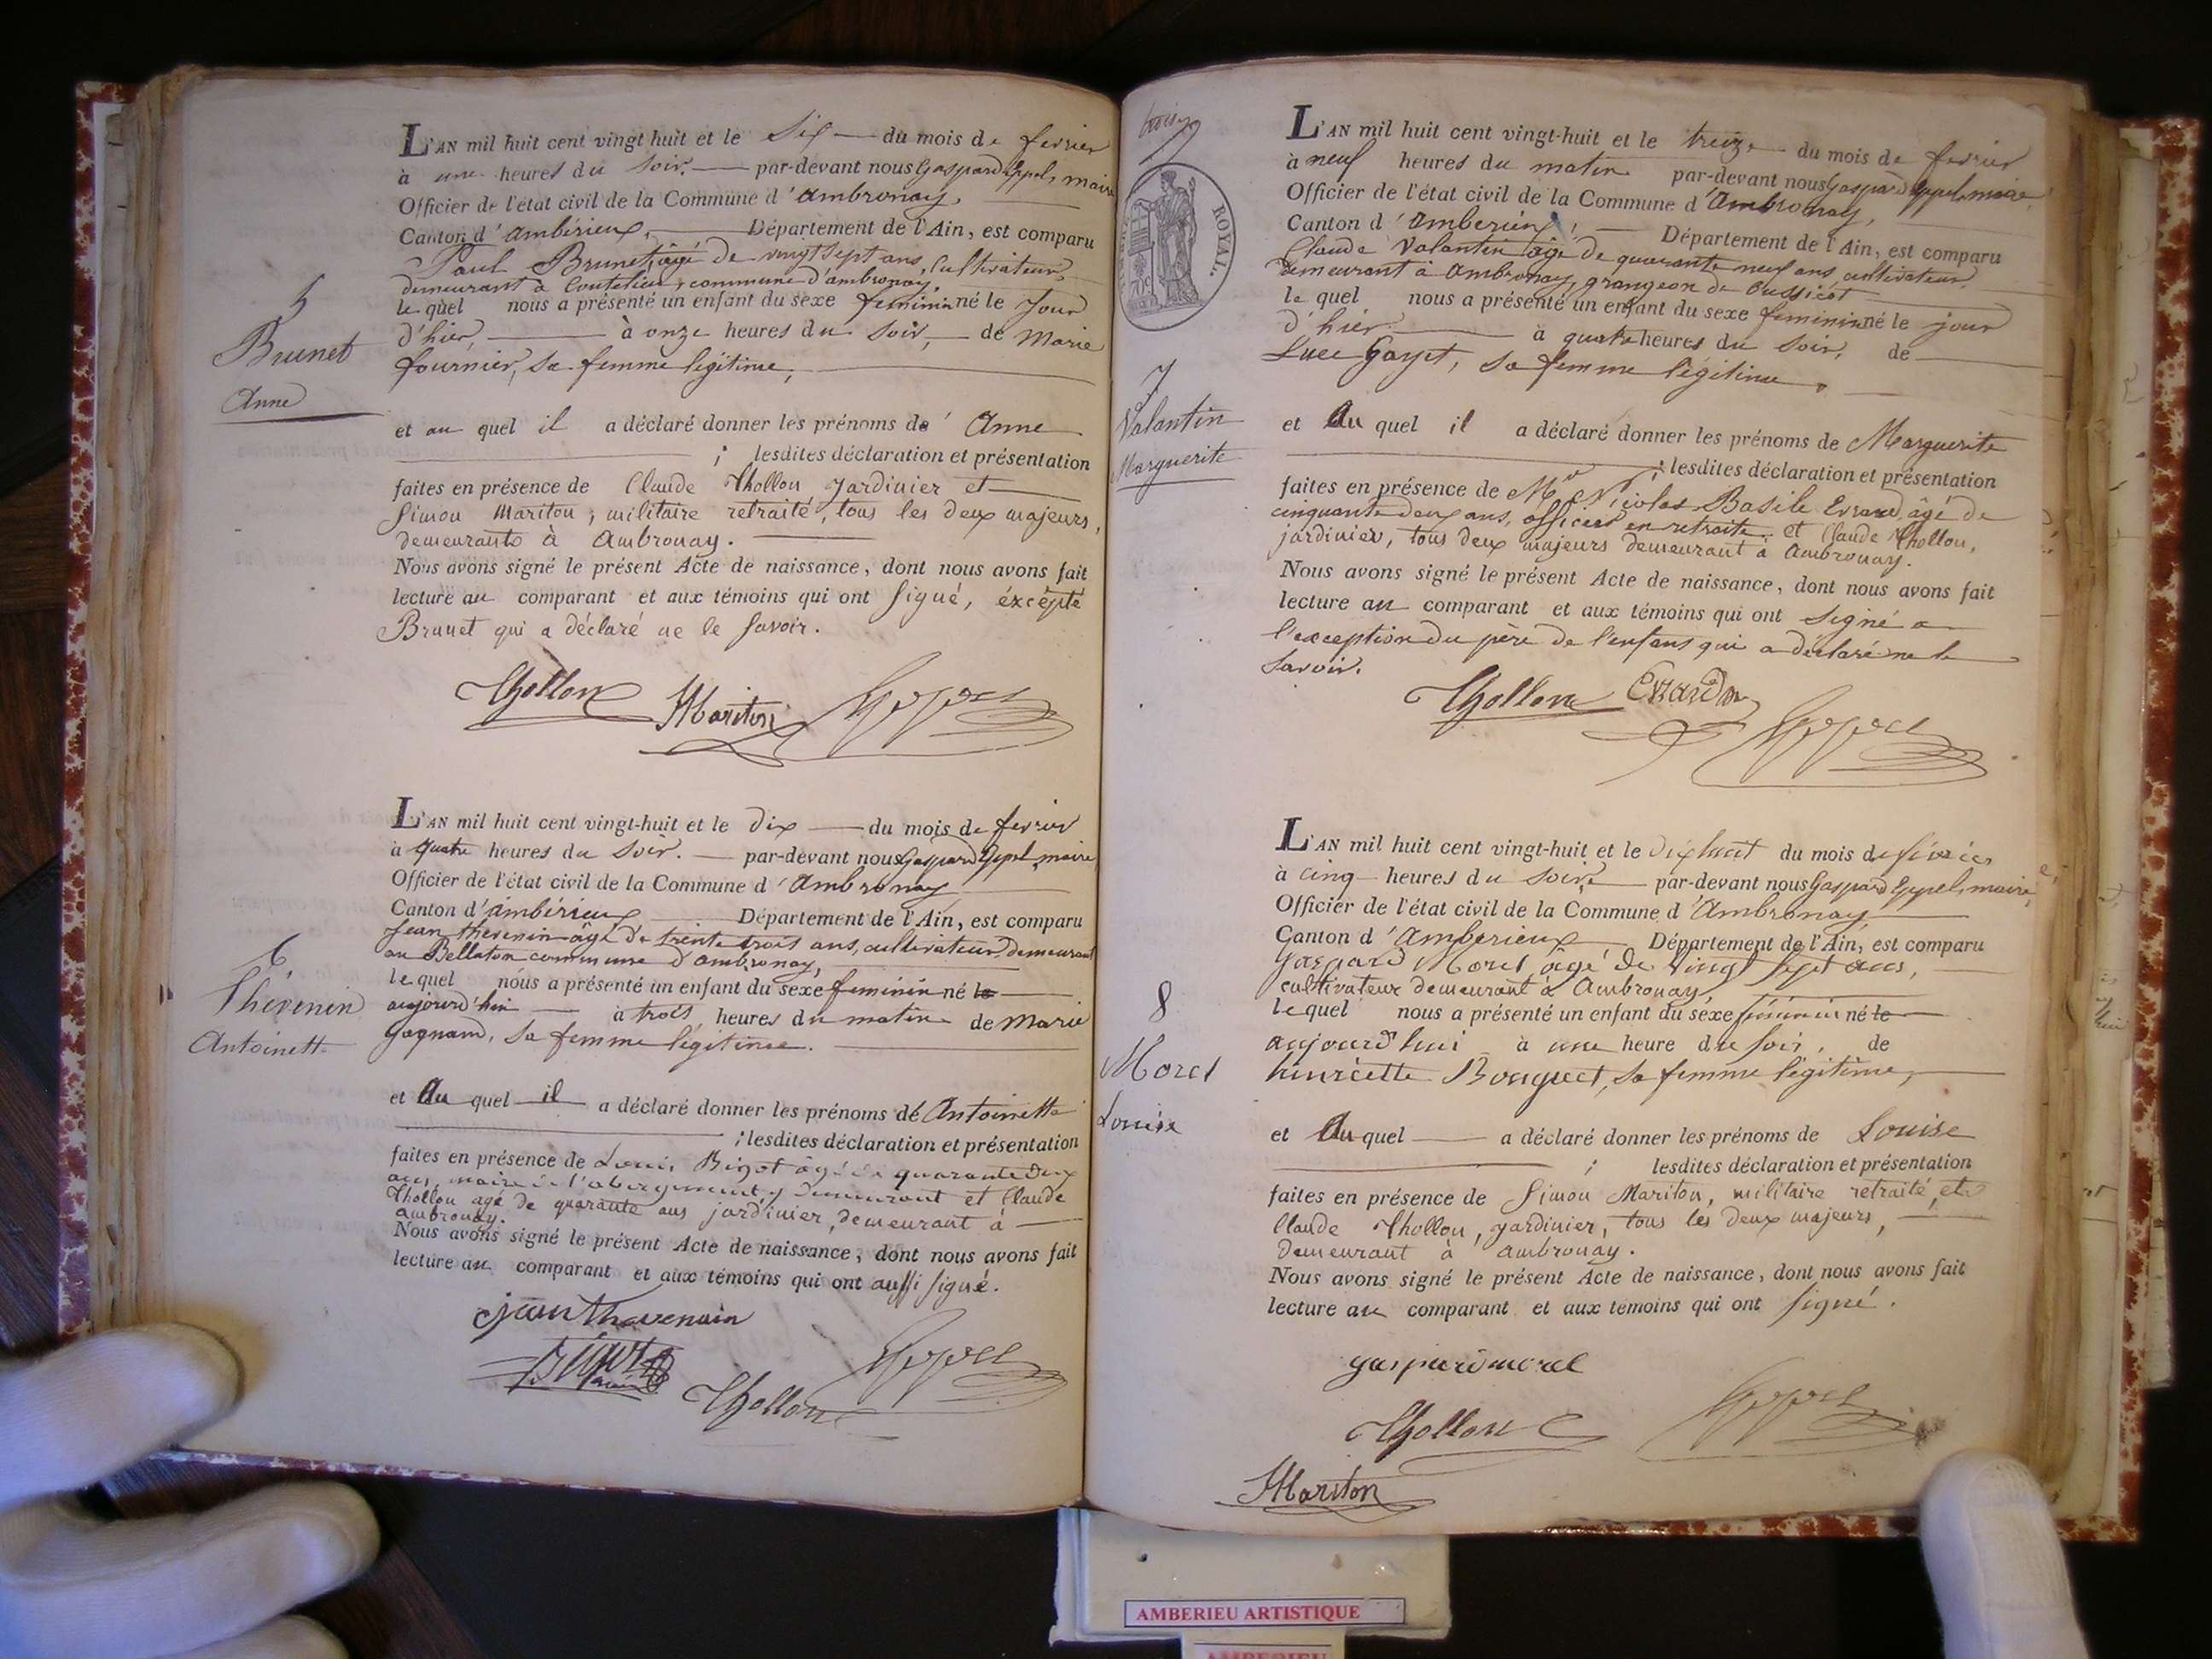 5
Brunet
Anne
L'AN mil huit cent vingt huit et le Six du mois de fevrier
à une heures du soir. par-devant nous Gaspard Eppel, maire
Officier de l'état civil de la Commune d'ambronay,
Canton d'ambérieux, Département de l'Ain, est comparu
Paul Brunet, âgé de vingt sept ans, Cultivateur,
demeurant à Coutelieu, commune d'ambronay,
le quel nous a présenté un enfant du sexe feminin né le Jour
d'hier, à onze heures du soir, de Marie
fournier, sa femme légitime,
et au quel il a déclaré donner les prénoms de Anne
; lesdites déclaration et présentation
faites en présence de Claude Thollon jardinier et
Simon Mariton, militaire retraité, tous les deux majeurs,
demeurants à Ambronay.
Nous avons signé le présent Acte de naissance, dont nous avons fait
lecture au comparant et aux témoins qui ont signé, éxcépté
Brunet qui a déclaré ne le savoir.
Thollon Mariton Eppel
6
Thévenin
Antoinette
L'AN mil huit cent vingt-huit et le dix du mois de fevrier
à quatre heures du soir. par-devant nous Gaspard Eppel, maire
Officier de l'état civil de la Commune d'Ambronay
Canton d'ambérieux Département de l'Ain, est comparu
Jean thevenin âgé de trente trois ans, cultivateur, demeurant
au Bellaton commune d'ambronay,
le quel nous a présenté un enfant du sexe feminin né le
aujourd'hui à trois heures du matin de Marie
Gagnand, sa femme légitime.
et Au quel il a déclaré donner les prénoms de Antoinette
; lesdites déclaration et présentation
faites en présence de Louis Bigot âgé de quarante deux
ans, maire de l'abergement, y demeurant et Claude
Thollon agé de quarante ans jardinier, demeurant à
ambronay.
Nous avons signé le présent Acte de naissance, dont nous avons fait
lecture au comparant et aux témoins qui ont aussi signé.
jean thevenin
Bigot
Thollon Eppel
trois
ROYAL.
7
Valantin
Marguerite
L'AN mil huit cent vingt-huit et le treize du mois de fevrier
à neuf heures du matin par-devant nous Gaspard Eppel, maire
Officier de l'état civil de la Commune d'Ambronay,
Canton d'Amberieux, Département de l'Ain, est comparu
Claude Valantin âgé de quarante neuf ans, cultivateur,
demeurant à Ambronay, grangeon de Cussicot
le quel nous a présenté un enfant du sexe feminin né le jour
d'hier à quatre heures du soir, de
Luce Gayet, sa femme légitime,
et Au quel il a déclaré donner les prénoms de Marguerite
; lesdites déclaration et présentation
faites en présence de Mr Nicolas Basile Evrard, âgé de
cinquante deux ans, officier en retraite et Claude Thollon,
jardinier, tous deux majeurs demeurant à Ambronay.
Nous avons signé le présent Acte de naissance, dont nous avons fait
lecture au comparant et aux témoins qui ont signé a
l'exception du père de l'enfant qui a déclaré ne le
savoir.
Thollon Evrard
Eppel
8
Morel
Louise
L'AN mil huit cent vingt-huit et le dix huit du mois de février
à cinq heures du soir par-devant nous Gaspard Eppel, maire,
Officier de l'état civil de la Commune d'Ambronay
Canton d'Amberieux Département de l'Ain, est comparu
Gaspard Morel, âgé de Vingt sept ans,
cultivateur demeurant à Ambronay,
le quel nous a présenté un enfant du sexe féminin né le
aujourd'hui à une heure du soir, de
henriette Bouquet, sa femme légitime,
et Au quel a déclaré donner les prénoms de Louise
; lesdites déclaration et présentation
faites en présence de Simon Mariton, militaire retraité, et
Claude Thollon, jardinier, tous les deux majeurs,
demeurant à ambronay.
Nous avons signé le présent Acte de naissance, dont nous avons fait
lecture au comparant et aux témoins qui ont signé.
gaspard morel
Thollon Eppel
Mariton
AMBERIEU ARTISTIQUE
AMBERIEU